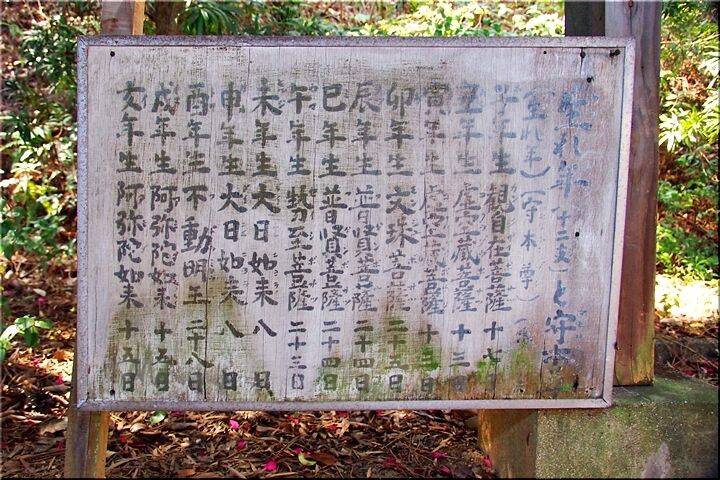 生れ年(十二支)と守本
(生れ年)(守本尊)(
子年生 観自在菩薩 十七日
丑年生 虚空蔵菩薩 十三日
寅年生 虚空蔵菩薩 十三日
卯年生 文珠菩薩 二十五日
辰年生 普賢菩薩 二十四日
巳年生 普賢菩薩 二十四日
午年生 勢至菩薩 二十三日
未年生 大日如来 八日
申年生 大日如来 八日
酉年生 不動明王 二十八日
戌年生 阿弥陀如来 十五日
亥年生 阿弥陀如来 十五日